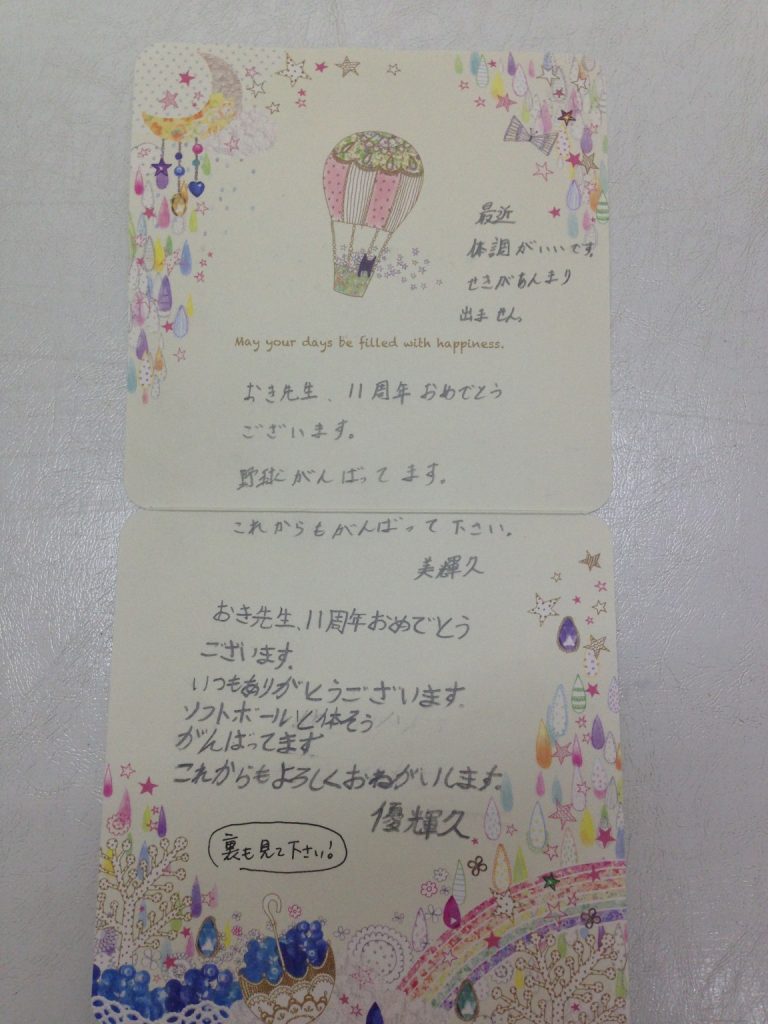 最近
体調がいいです。
せきがあんまり
出ません。
May your days be filled with happiness.
おき先生、11周年おめでとう
ございます。
野球がんばってます。
これからもがんばって下さい。
美輝久
おき先生、11周年おめでとう
ございます。
いつもありがとうございます。
ソフトボールと体そう
がんばってます
これからもよろしくおねがいします。
優輝久
裏も見て下さい!